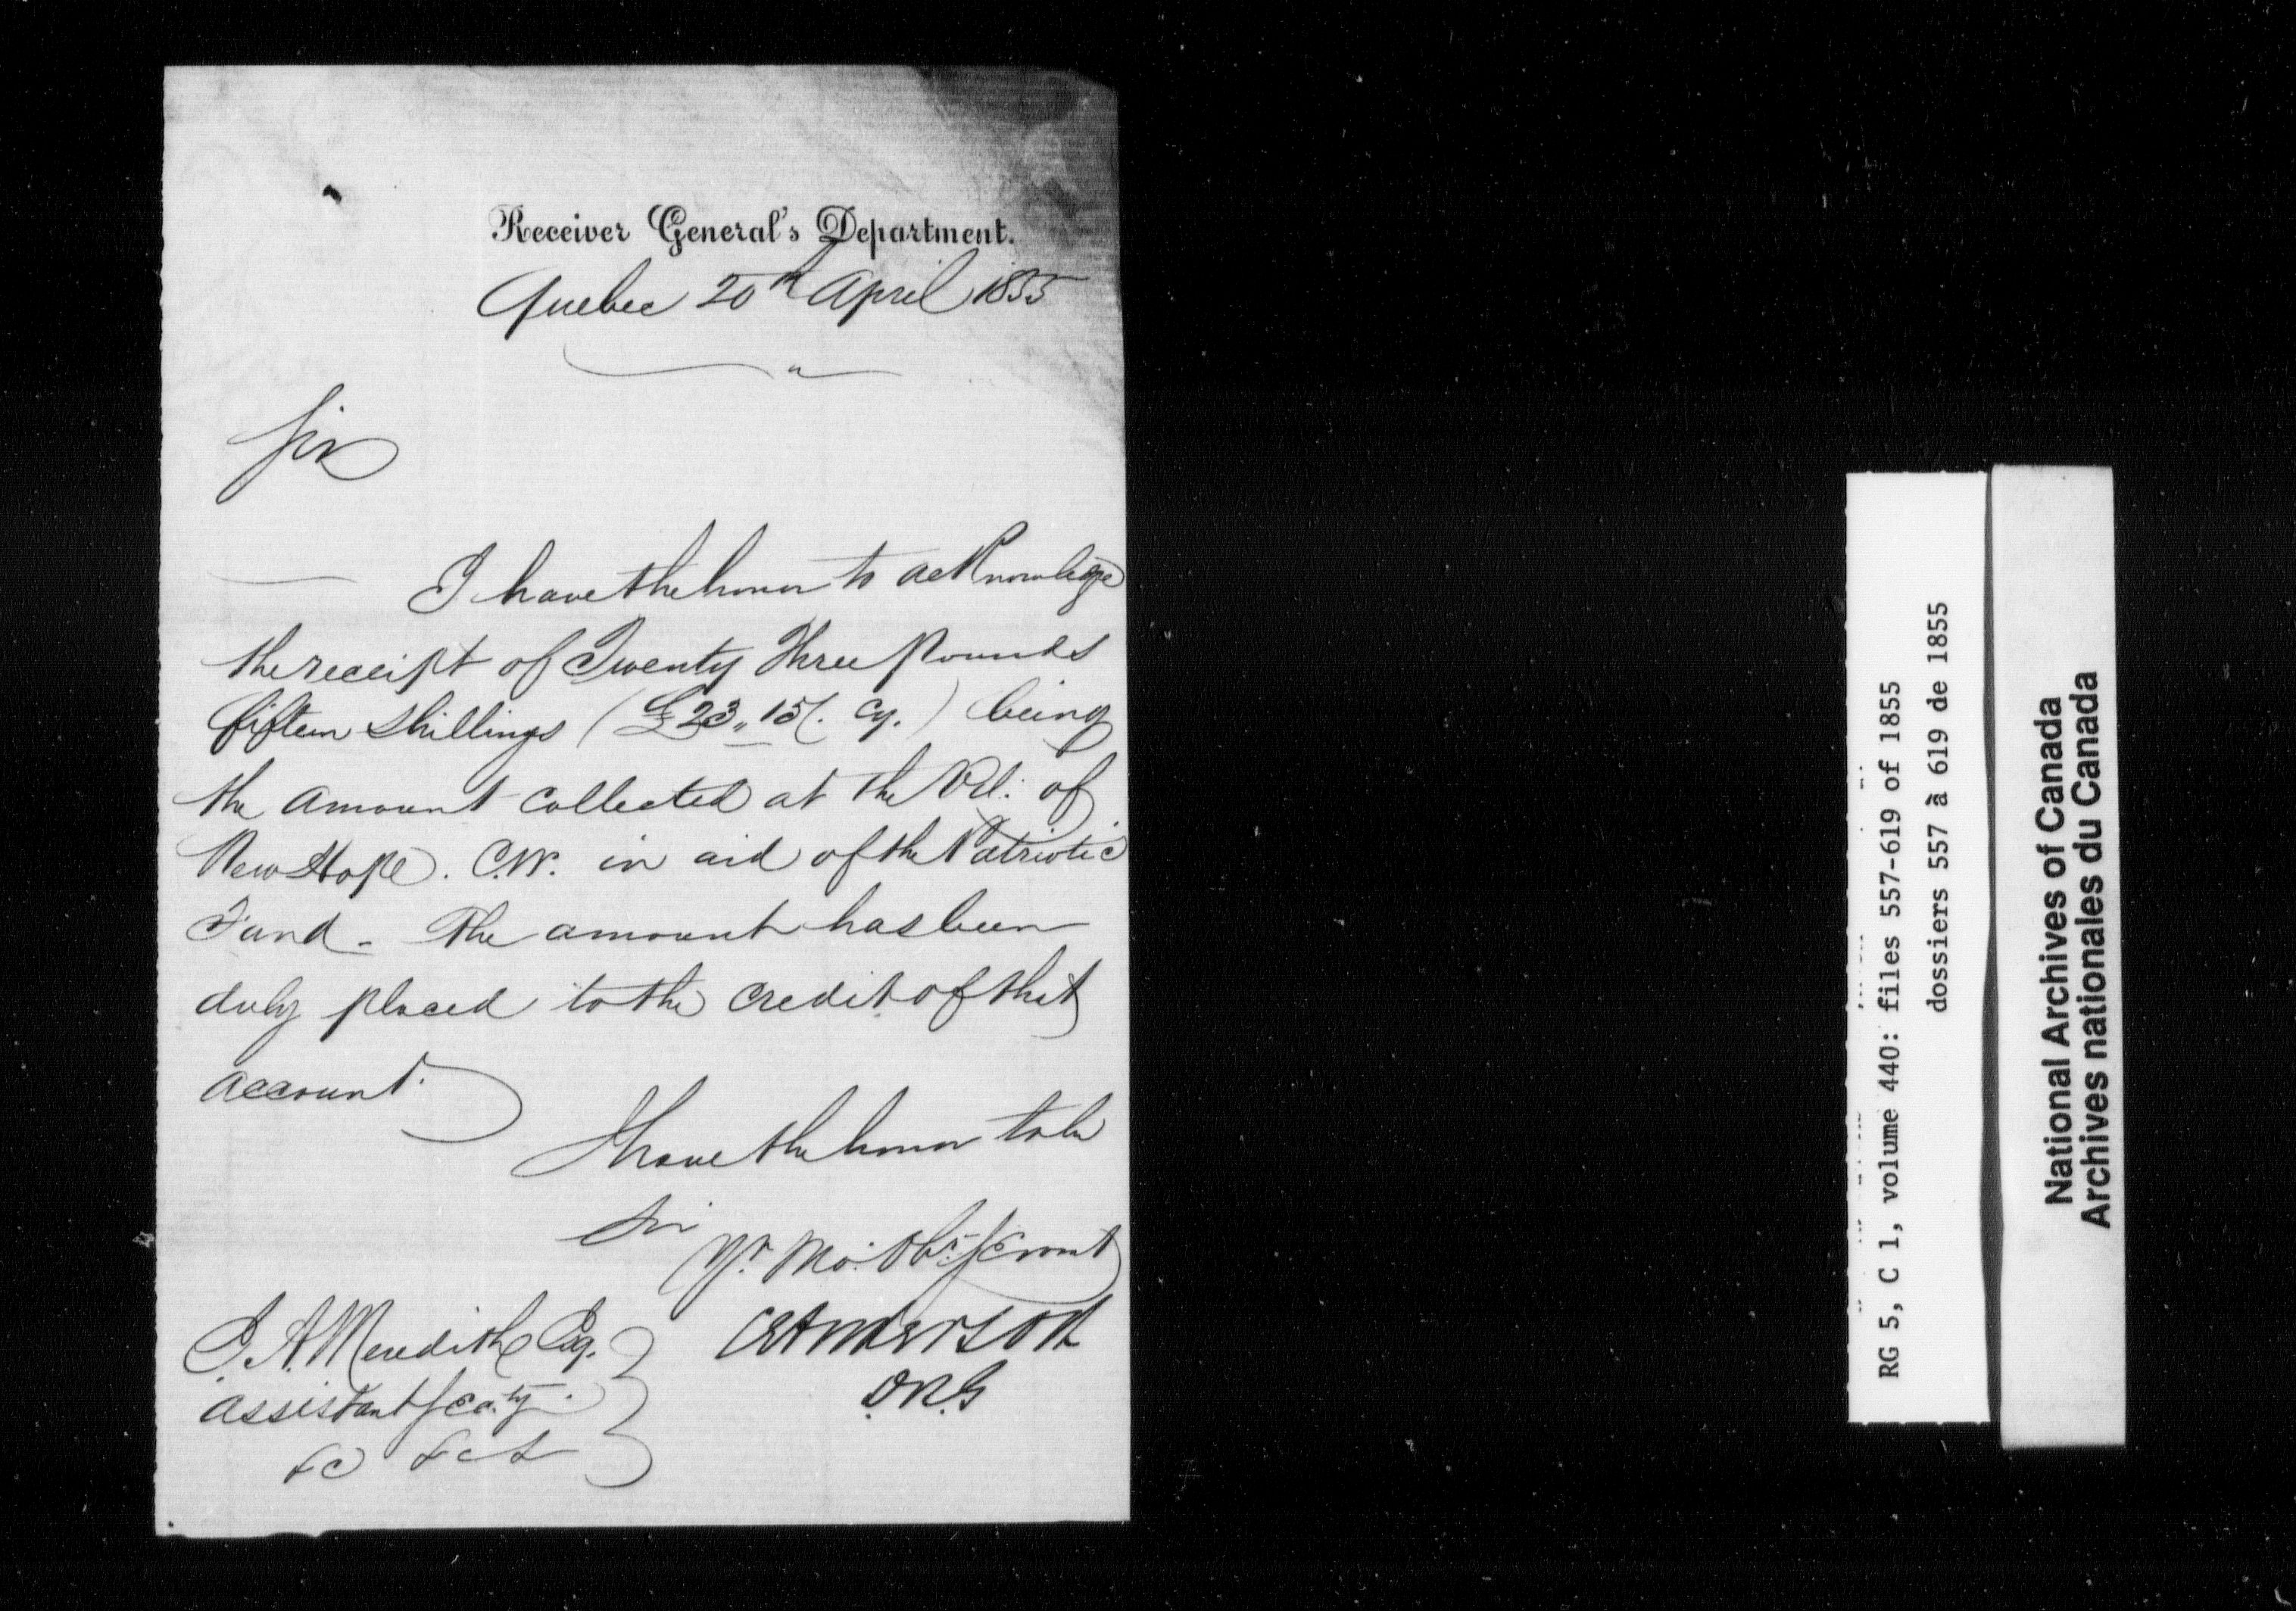 Receiver General's Department.
Quebec 20th April 1855
Sir
I have the honor to acknowledge
the receipt of Twenty Three Pounds
fifteen shillings (£23,, 15/. Cy.) being
the amount collected at the Vil: of
New Hope. C.W. in aid of the Patriotic
Fund - The amount has been
duly placed to the credit of that
account.
I have the honor to be
Sir
Yr. Mo: Obt. Servant
CE Anderson
D.R.G
J. A. Meredith Esq.
Assistant Secty.
&c &c &
RG 5, C 1, volume 440: files 557-619 of 1855
dossiers 557 à 619 de 1855
National Archives of Canada
Archives nationales du Canada